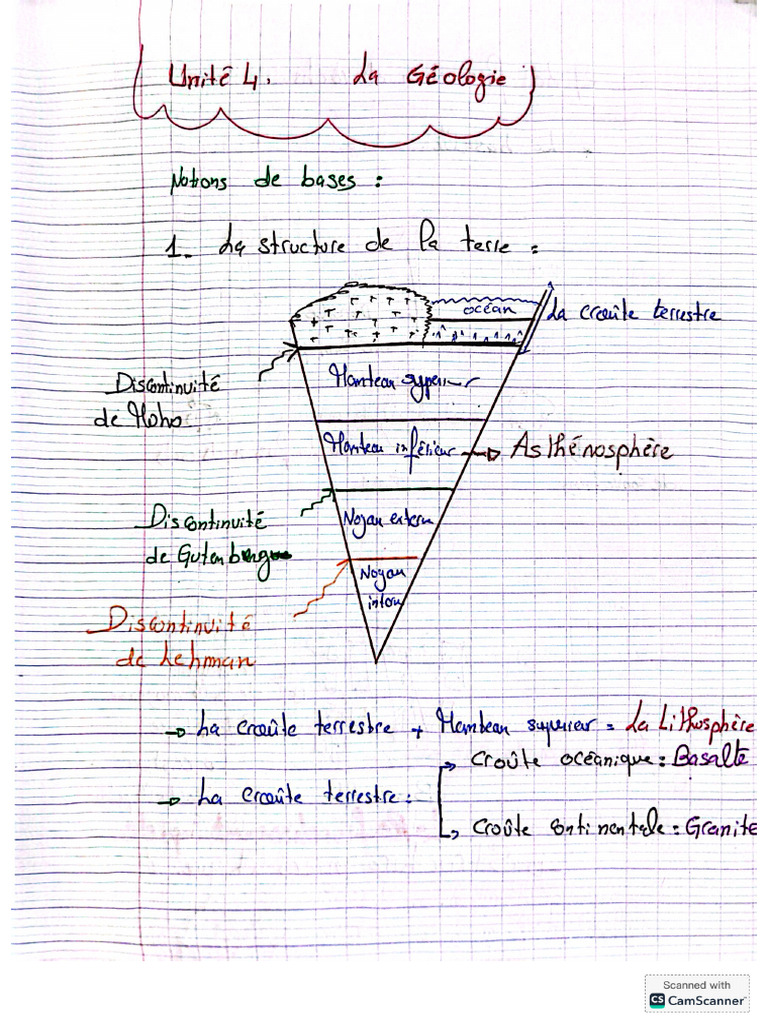 Unité 4. La Géologie
Notions de bases :
1. La structure de la terre :
océan
La croûte terrestre
Discontinuité
de Moho
Manteau superieur
Manteau inférieur → Asthénosphère
Discontinuité
de Gutenberg
Noyau externe
Noyau
interne
Discontinuité
de Lehman
→ La croûte terrestre + Manteau superieur = La Lithosphère
→ La croûte terrestre :
Croûte océanique : Basalte
Croûte continentale = Granite
Scanned with
CS CamScanner